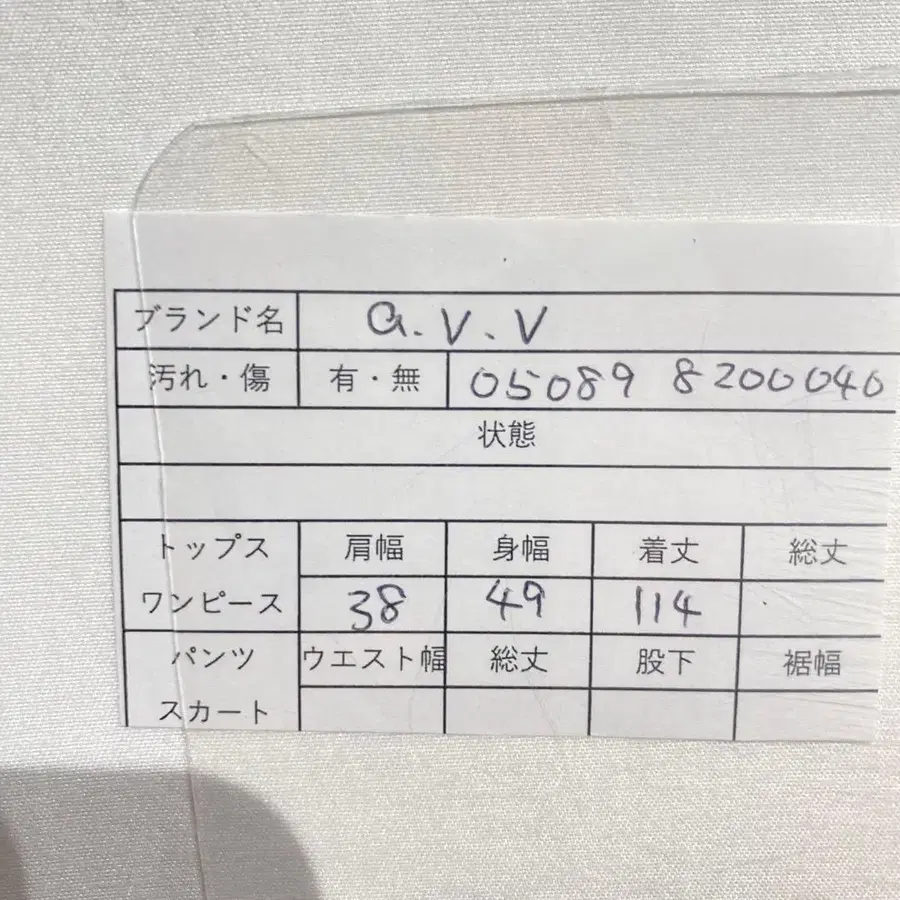 ブランド名 a.v.v
汚れ・傷 有・無 05089 8200040
状態
トップス 肩幅 身幅 着丈 総丈
ワンピース 38 49 114
パンツ ウエスト幅 総丈 股下 裾幅
スカート